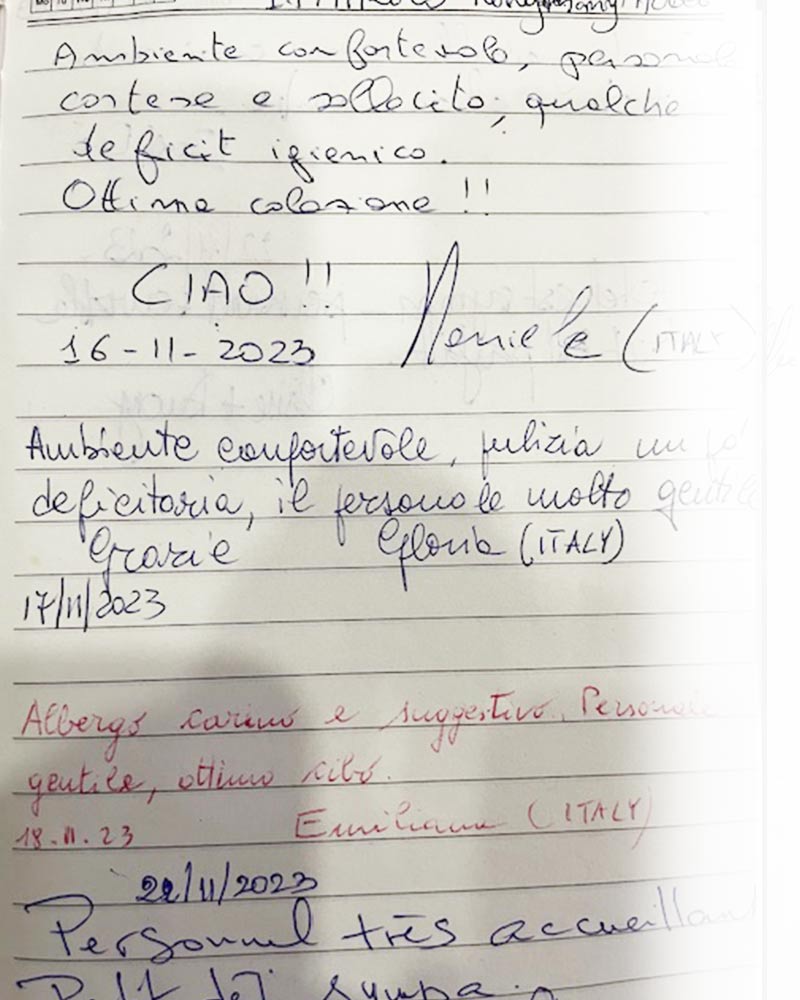 Ambiente confortevole, personale
cortese e sollecito, qualche
deficit igienico.
Ottima colazione !!
CIAO !!
16-11-2023 (ITALY
Ambiente confortevole, pulizia un pó
deficitaria, il personale molto gentile
Grazie Gloria (ITALY)
17/11/2023
Albergo carino e suggestivo. Personale
gentile, ottimo cibo.
18.11.23 Emiliana (ITALY)
22/11/2023
Personnel très accueillant
sympa.